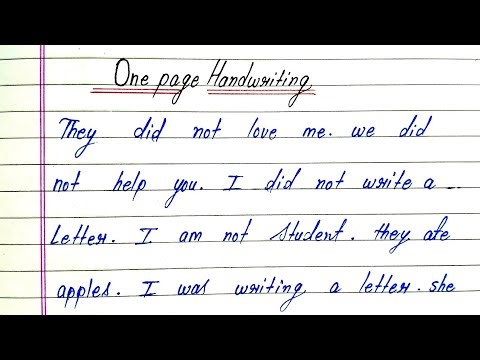 One page Handwriting
They did not love me. we did
not help you. I did not write a
Letter. I am not student. they ate
apples. I was writing a letter. she